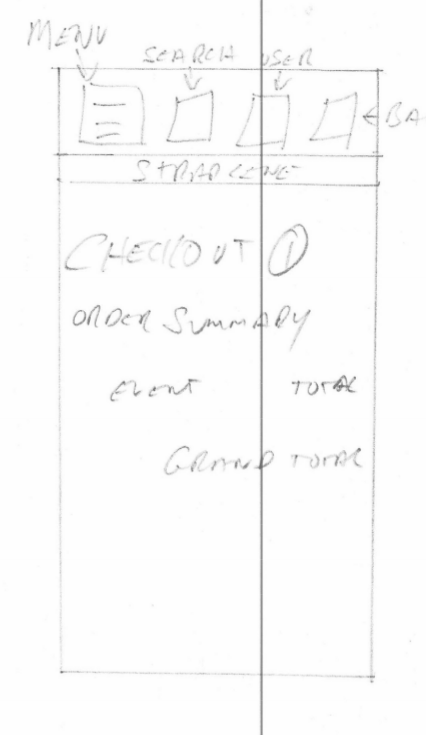 MENU
SEARCH USER
BA
STRAPLINE
CHECKOUT 1
ORDER SUMMARY
EVENT TOTAL
GRAND TOTAL